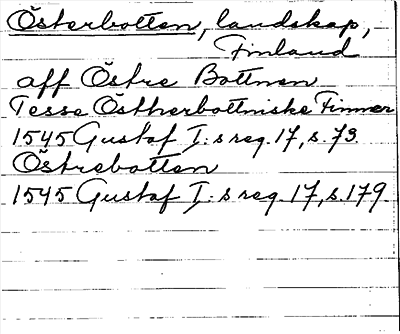 Österbotten, landskap,
Finland
aff Östre Bottnen
Tesse Östherbottniske Finner
1545 Gustaf I:s reg. 17, s. 73.
Östrebotten
1545 Gustaf I:s reg. 17, s. 179.